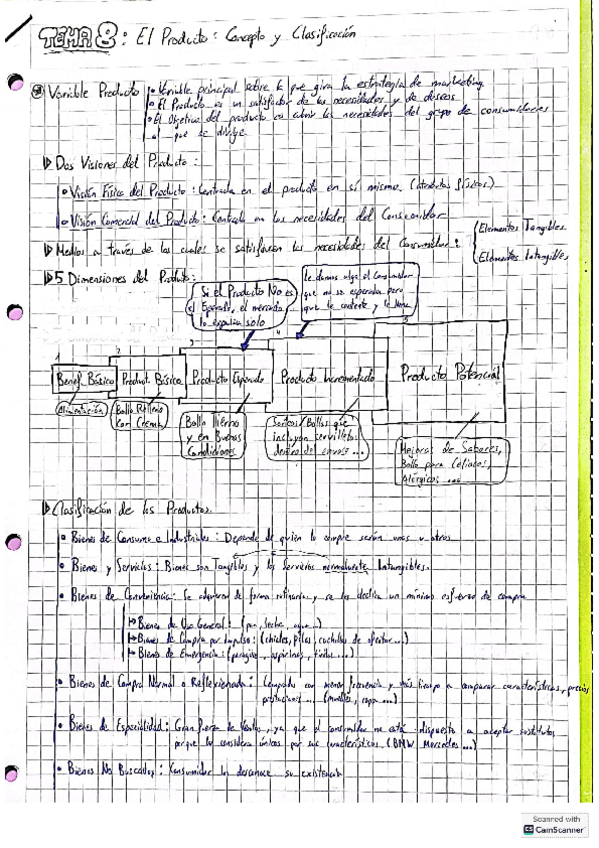 TEMA 8: El Producto: Concepto y Clasificación
Variable Producto
• Variable principal sobre la que gira la estrategia de marketing
• El Producto es un satisfactor de las necesidades y de deseos
• El Objetivo del producto es cubrir las necesidades del grupo de consumidores
al que se dirige
Dos Visiones del Producto:
• Visión Física del Producto: Centrada en el producto en sí mismo. (atributos físicos)
• Visión Comercial del Producto: Centrada en las necesidades del Consumidor
Medios a través de los cuales se satisfacen las necesidades del Consumidor:
Elementos Tangibles.
Elementos Intangibles.
5 Dimensiones del Producto:
Si el Producto No es
Esperado, el mercado
lo expulsa solo
le damos algo al Consumidor
que no se esperaba pero
que le contente y le llame
1
2
3
4
5
Benef. Básico
Product. Básico
Producto Esperado
Producto Incrementado
Producto Potencial
Alimentación
Bollo Relleno
con Crema
Bollo Tierno
y en Buenas
Condiciones
Sorteos/Bollos que
incluyan servilletas
dentro del envase...
Mejoras de Sabores,
Bollo para Celiacos,
Alérgicos ...
Clasificación de los Productos.
• Bienes de Consumo e Industriales: Depende de quien lo compre serán unos u otros
• Bienes y Servicios: Bienes son Tangibles y los Servicios normalmente Intangibles.
• Bienes de Conveniencia: Se adquieren de forma rutinaria y se les dedica un mínimo esfuerzo de compra
Bienes de Uso General: (pan, leche, agua...)
Bienes de Compra por Impulso: (chicles, pilas, cuchillas de afeitar...)
Bienes de Emergencia: (paraguas, aspirinas, tiritas...)
• Bienes de Compra Normal o Reflexionada: Comprados con menor frecuencia y más tiempo a comparar características, precios
prestaciones... (muebles, ropa...)
• Bienes de Especialidad: Gran fuerza de Ventas, ya que el consumidor no está dispuesto a aceptar sustitutos
porque los considera únicos por sus características (BMW, Mercedes...)
• Bienes No Buscados: Consumidor los desconoce su existencia
Scanned with
CamScanner